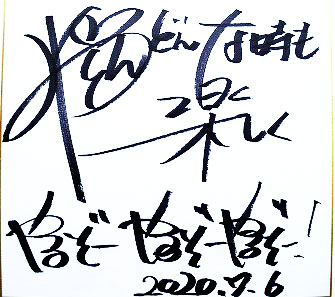 どんな時も
楽しく
やるぞー やるぞー やるぞー!
2020.7.6